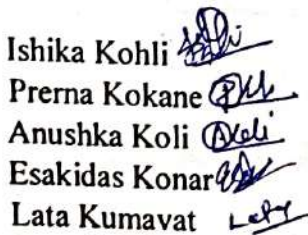 Ishika Kohli
Prerna Kokane
Anushka Koli AKoli
Esakidas Konar
Lata Kumavat